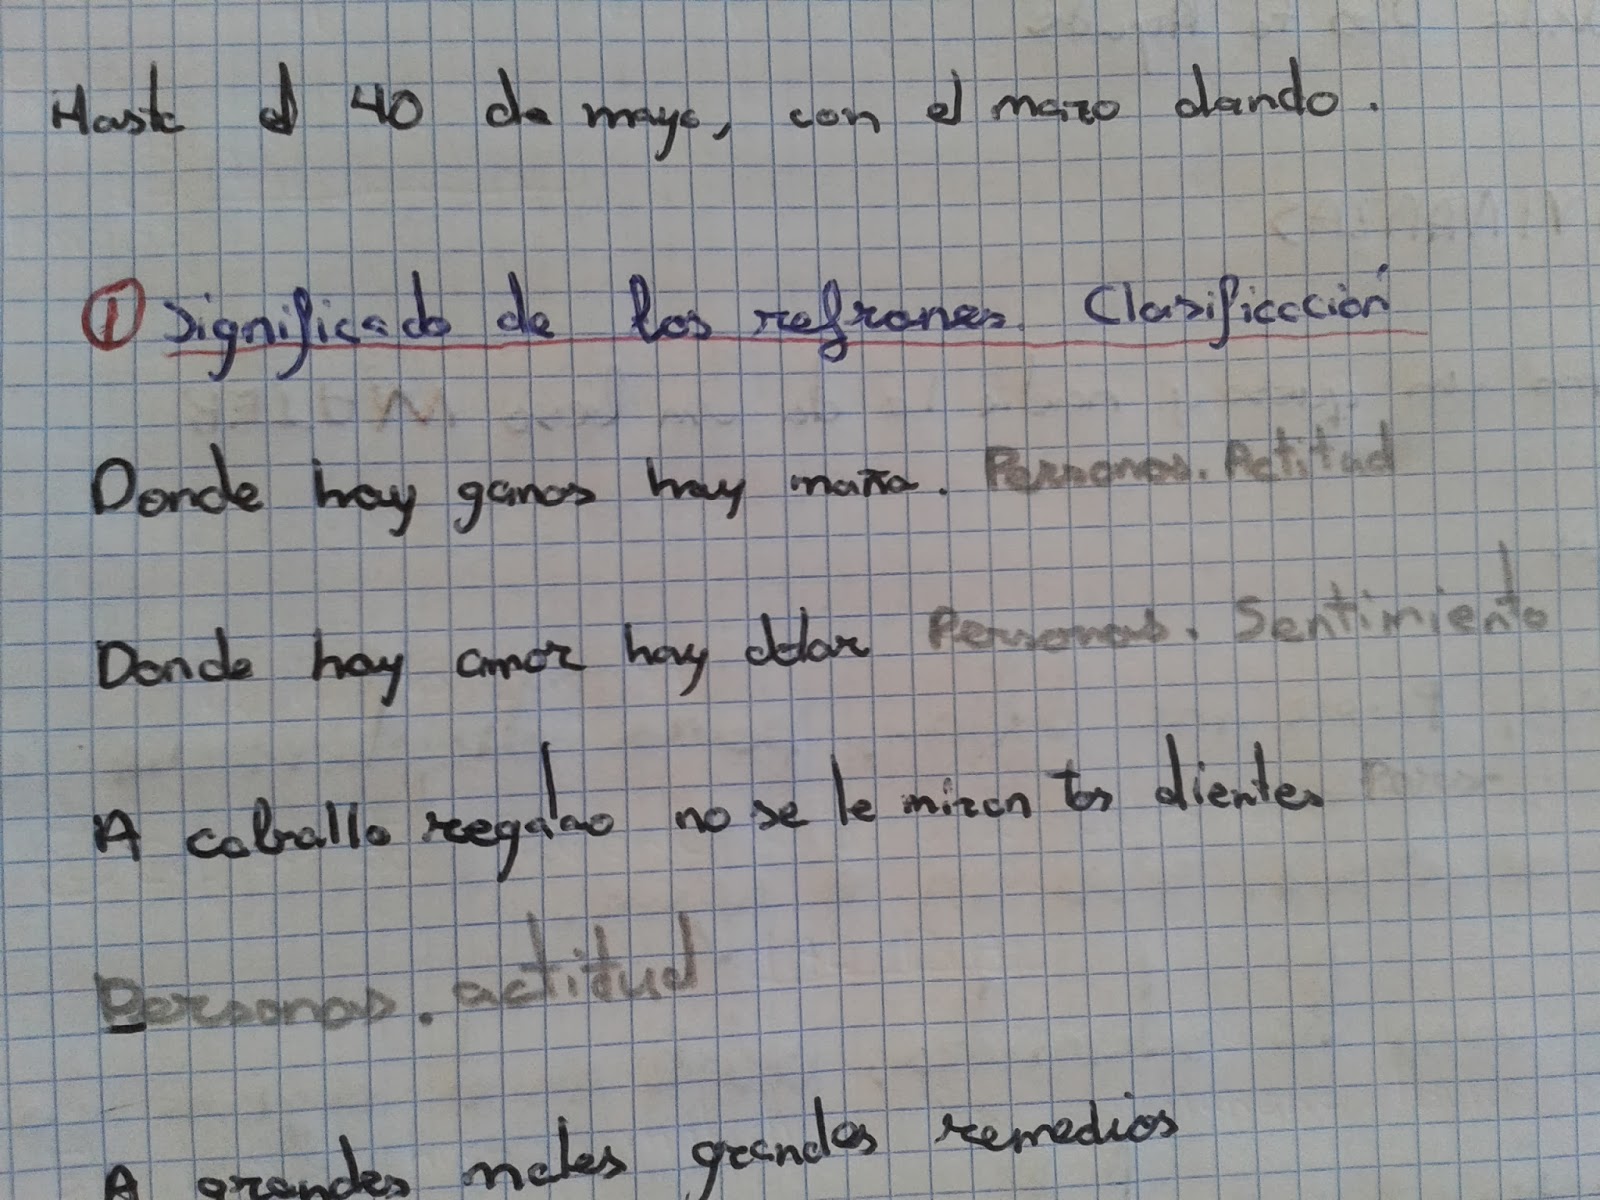 Hasta el 40 de mayo, con el mazo dando.
① Significado de los refranes. Clasificación
Donde hay ganas hay maña. Personas. Actitud
Donde hay amor hay dolor Personas. Sentimiento
A caballo regalao no se le miran los dientes
Personas. actitud
A grandes males grandes remedios